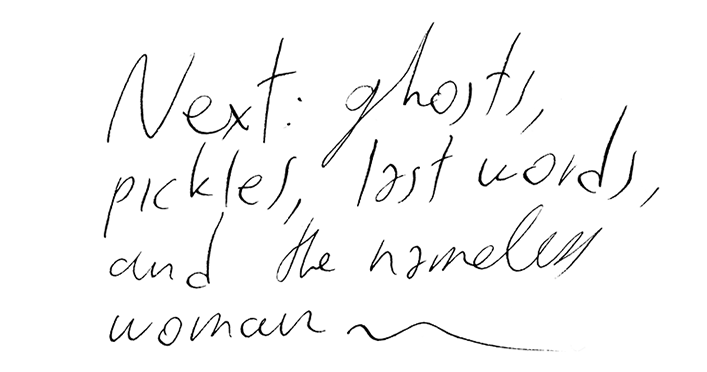 Next: ghosts,
pickles, last words,
and the nameless
woman